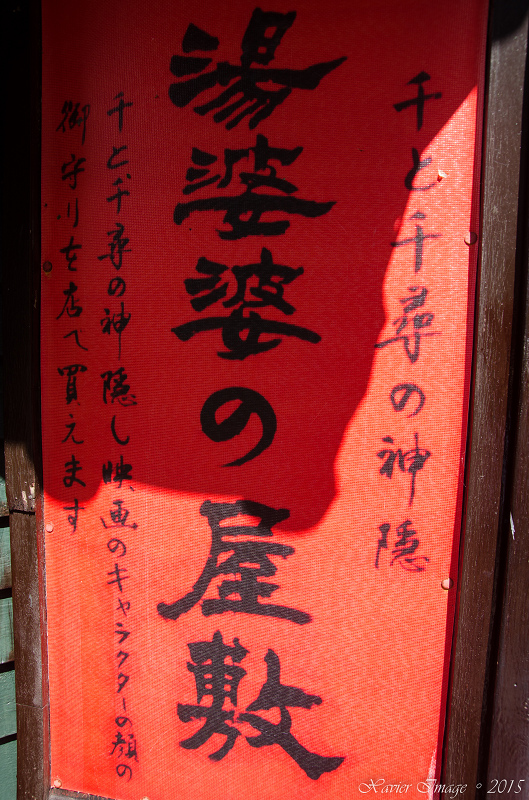 千と千尋の神隠
湯婆婆の屋敷
千と千尋の神隠し映画のキャラクターの顔の
御守りを店で買えます
Xavier Image © 2015